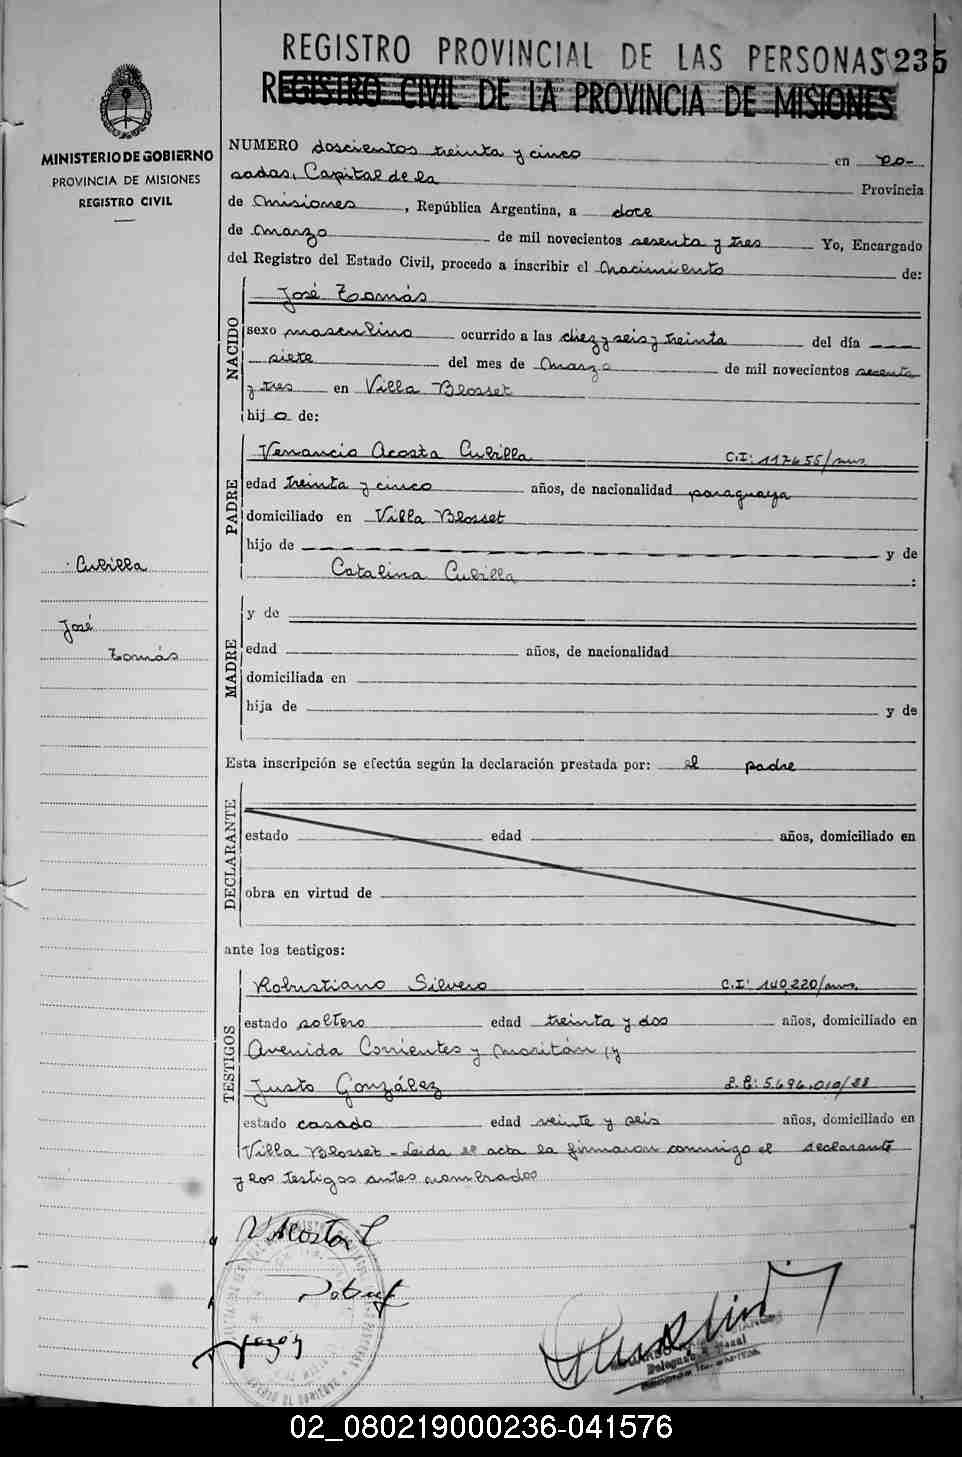 REGISTRO PROVINCIAL DE LAS PERSONAS 235
REGISTRO CIVIL DE LA PROVINCIA DE MISIONES
MINISTERIO DE GOBIERNO
PROVINCIA DE MISIONES
REGISTRO CIVIL
NUMERO doscientos treinta y cinco en Po-
sadas, Capital de la Provincia
de Misiones, República Argentina, a doce
de Marzo de mil novecientos sesenta y tres Yo, Encargado
del Registro del Estado Civil, procedo a inscribir el Nacimiento de:
NACIDO
José Tomás
sexo masculino ocurrido a las diez y seis y treinta del día
siete del mes de Marzo de mil novecientos sesenta
y tres en Villa Blosset
hijo de:
PADRE
Venancio Acosta Cubilla C.I: 117655/mns.
edad treinta y cinco años, de nacionalidad paraguaya
domiciliado en Villa Blosset
hijo de y de
Catalina Cubilla :
Cubilla
José
Tomás
MADRE
y de
edad años, de nacionalidad
domiciliada en
hija de y de
Esta inscripción se efectúa según la declaración prestada por: el padre
DECLARANTE
estado edad años, domiciliado en
obra en virtud de
ante los testigos:
TESTIGOS
Robustiano Silvero C.I: 140.220/mns.
estado soltero edad treinta y dos años, domiciliado en
Avenida Corrientes y Moritán, y
Justo González 5.696.010/28
estado casado edad veinte y seis años, domiciliado en
Villa Blosset - Leida el acta la firmaron conmigo el declarante
y los testigos antes nombrados
V Acosta C
02_080219000236-041576